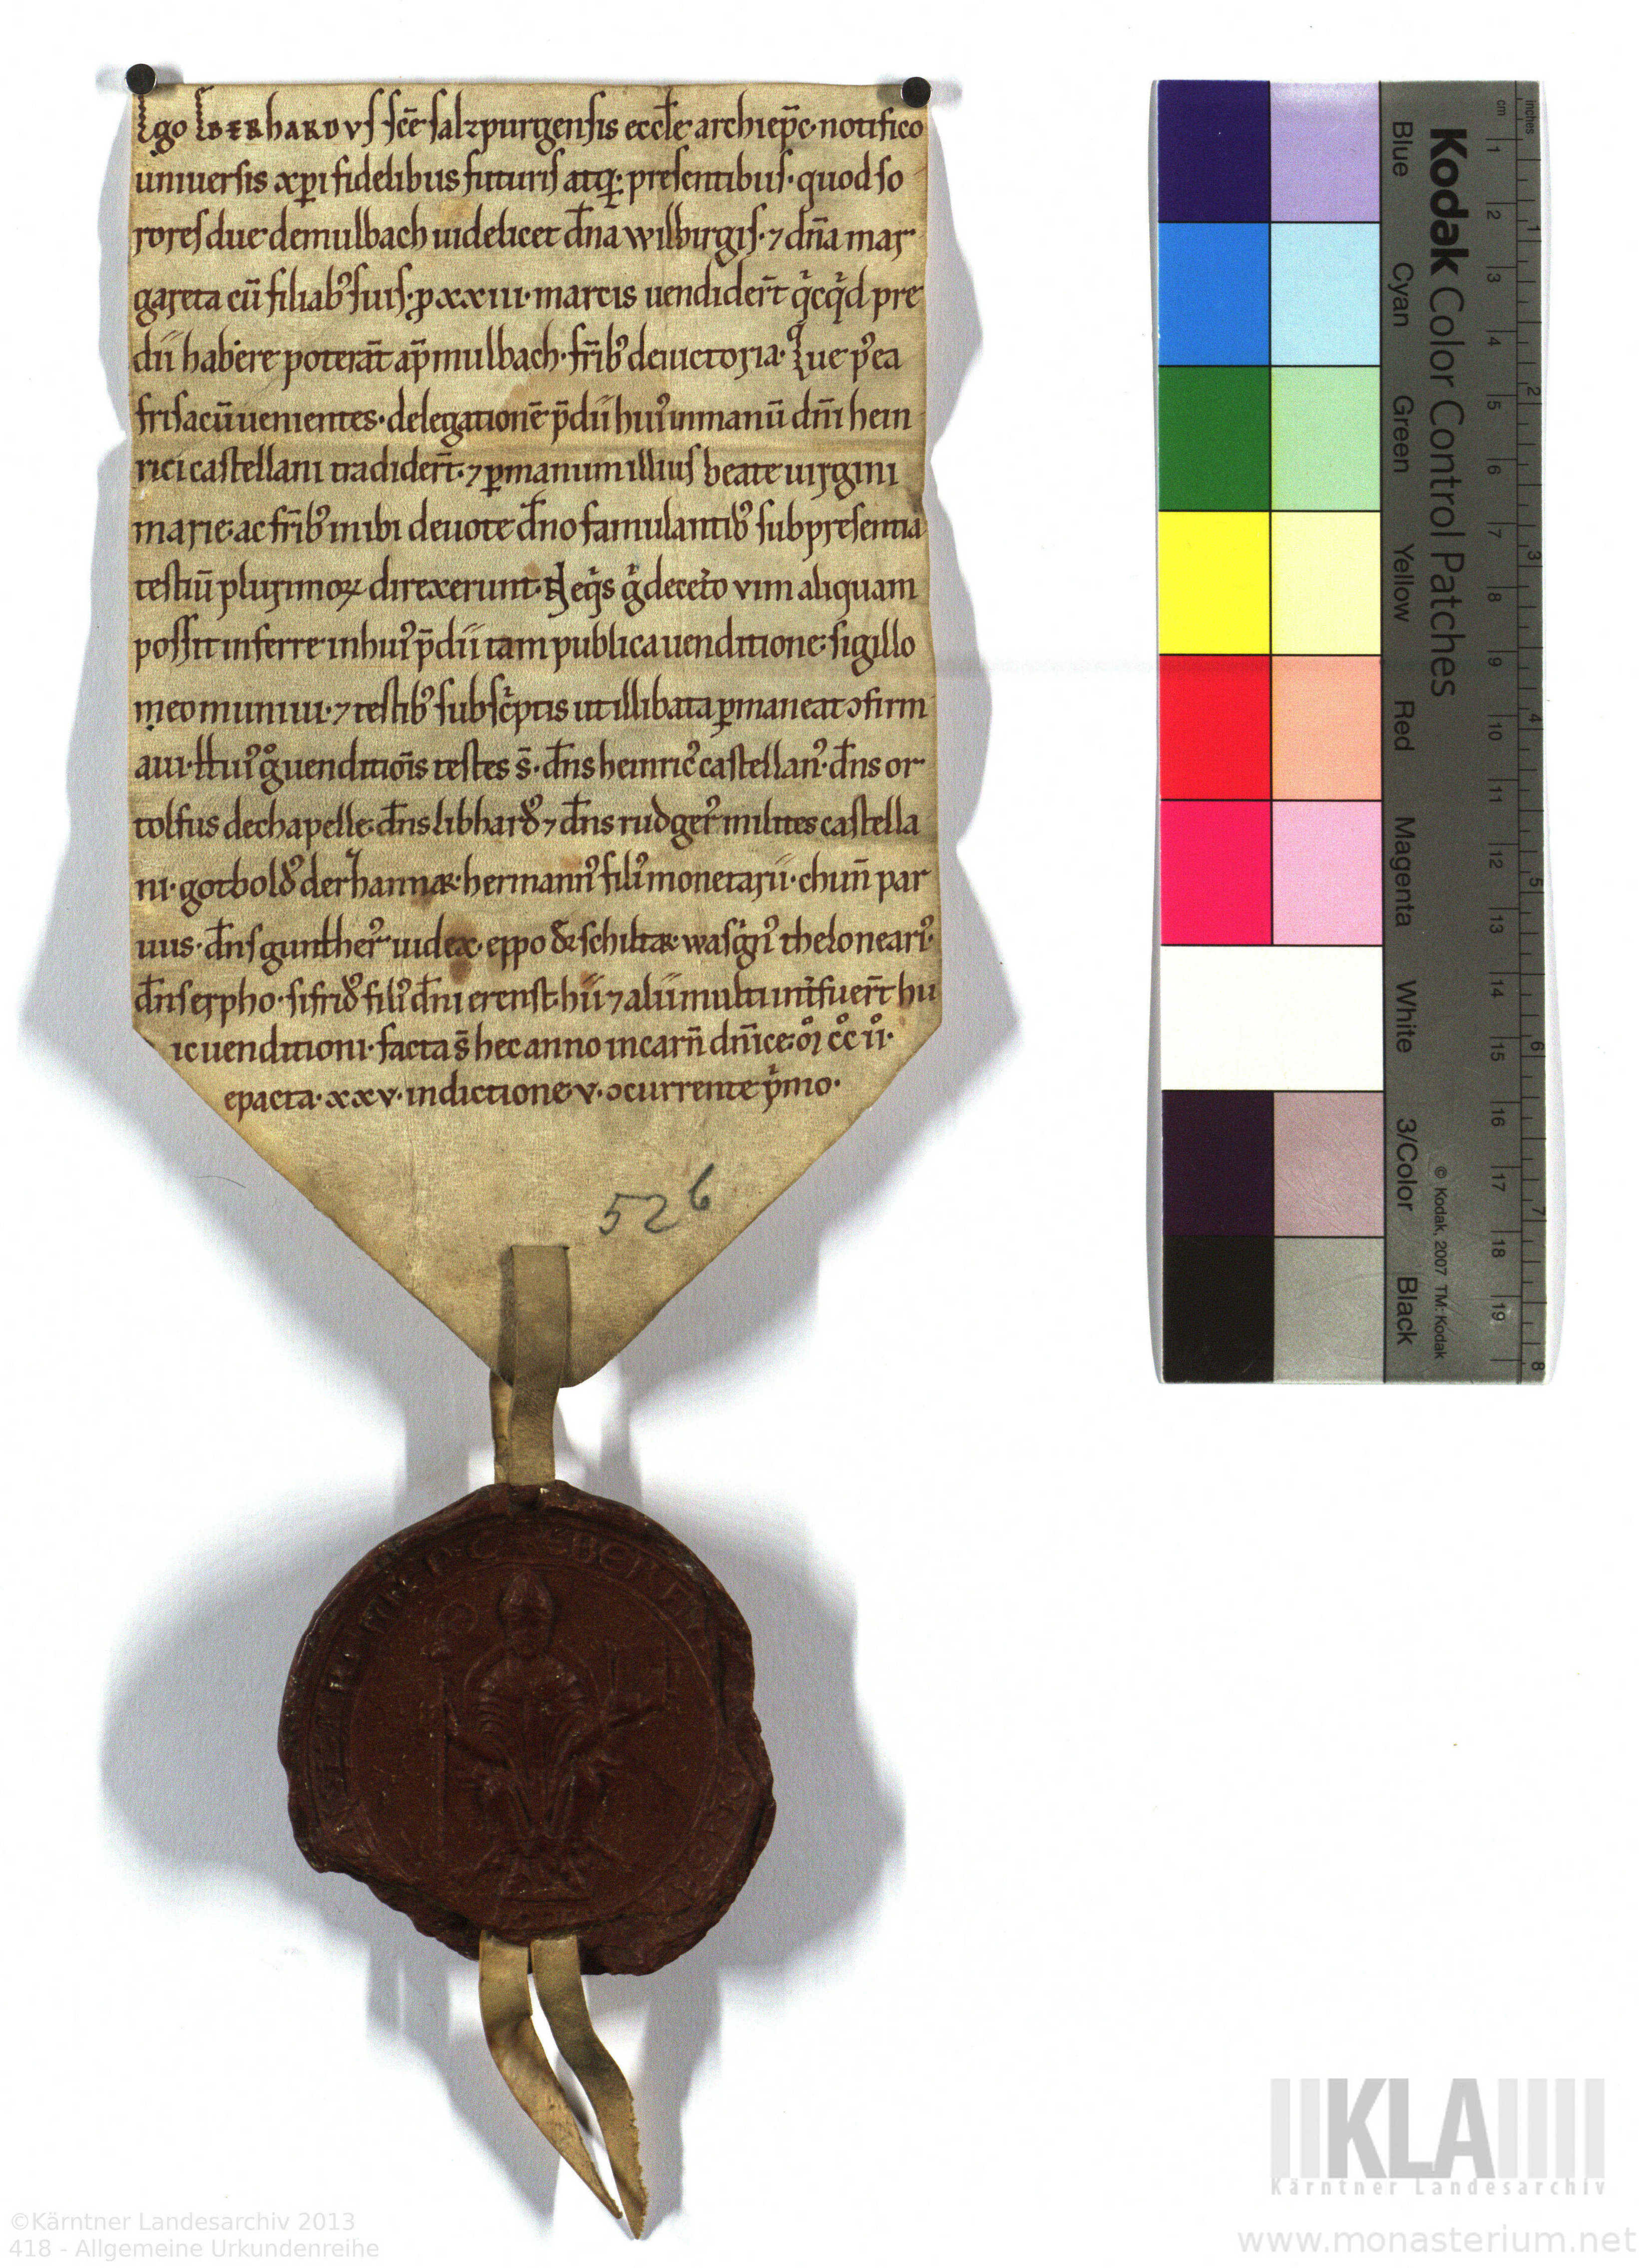 Ego Eberhardus sc̄e salzpurgensis eccl̄e archiep̄c· notifico
uniuersis xp̄i fidelibus futuris atq;· presentibus· quod so
rores due de mulbach uidelicet dn̄a wilbirgis· ⁊ dn̄a mar
gareta cū filiabꝰ suis· ꝓ xxiii· marcis uendider̄t qͥcqͥd pre
dii habere poterāt ap̄ mulbach· fr̄ibꝰ de uictoria· Que pꝰea
frisacū uenientes· delegationē p̄dii huiꝰ in manū dn̄i hein
rici castellani tradider̄t· ⁊ ꝑ manum illius beate uirgini
marie· ac fr̄ibꝰ inibi deuote dn̄o famulantibꝰ sub presentia
testiū plurimoꝝ direxerunt· Ne qͥs g̊ decet̾o vim aliquam
possit inferre in huiꝰ p̄dii tam publica uenditione· sigillo
meo muniui· ⁊ testibꝰ subscͥptis ut illibata ꝑmaneat ↄfirm
aui· Huiꝰ g̊ uenditiōis testes s̄· dn̄s heinricꝰ castellanꝰ· dn̄s or
tolfus de chapelle· dn̄s libhardꝰ ⁊ dn̄s rudgerꝰ milites castella
ni· gotboldꝰ der hannær· hermannꝰ filiꝰ monetarii· chun̄ par
uus· dn̄s guntherꝰ iudex· eppo der schiltær· wasgͥnꝰ thelonearꝰ·
dn̄s erpho· sifridꝰ filiꝰ dn̄i erenst· hii ⁊ alii multi int̾fuer̄t hu
ic uenditioni· facta s̄ hec anno incarn̄ dn̄ice· m̊ c̊c̊ ii̊·
epacta· xxv· indictione· v· ↄcurrente pͥmo·
52 6
Kodak Color Control Patches
Blue Cyan Green Yellow Red Magenta White 3/Color Black
© Kodak, 2007 TM: Kodak
cm 1 2 3 4 5 6 7 8 9 10 11 12 13 14 15 16 17 18 19
inches 1 2 3 4 5 6 7 8
KLA
Kärntner Landesarchiv
©Kärntner Landesarchiv 2013
418 - Allgemeine Urkundenreihe
www.monasterium.net